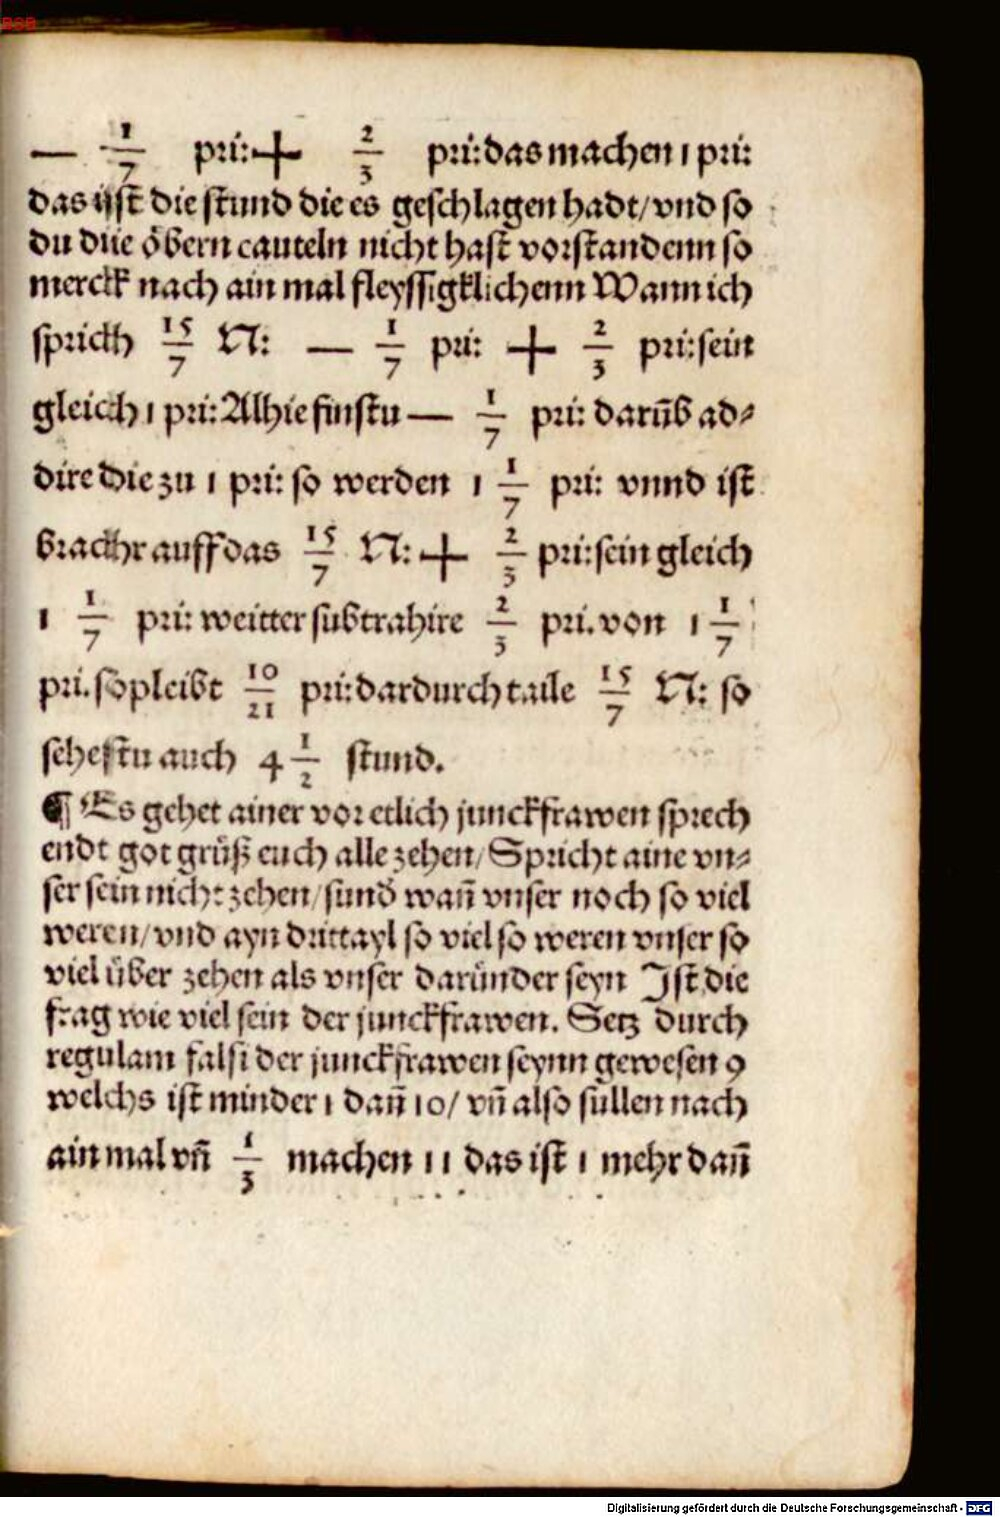 BSB
— 1/7 pri: + 2/3 pri: das machen 1 pri:
das ist die stund die es geschlagen hadt/ vnd so
du die öbern cauteln nicht hast vorstandenn so
merck nach ain mal fleyssigklichenn Wann ich
sprich 15/7 N: — 1/7 pri: + 2/3 pri: sein
gleich 1 pri: Alhie finstu — 1/7 pri: darūb ad⸗
dire die zu 1 pri: so werden 1 1/7 pri: vnnd ist
bracht auff das 15/7 N: + 2/3 pri: sein gleich
1 1/7 pri: weitter subtrahire 2/3 pri. von 1 1/7
pri. so pleibt 10/21 pri: dardurch taile 15/7 N: so
sehestu auch 4 1/2 stund.
¶ Es gehet ainer vor etlich junckfrawen sprech
endt got grüß euch alle zehen/ Spricht aine vn⸗
ser sein nicht zehen/ sund wañ vnser noch so viel
weren/ vnd ayn drittayl so viel so weren vnser so
viel über zehen als vnser daründer seyn Ist die
frag wie viel sein der junckfrawen. Setz durch
regulam falsi der junckfrawen seynn gewesen 9
welchs ist minder 1 dañ 10/ vñ also süllen nach
ain mal vñ 1/3 machen 11 das ist 1 mehr dañ
Digitalisierung gefördert durch die Deutsche Forschungsgemeinschaft - DFG